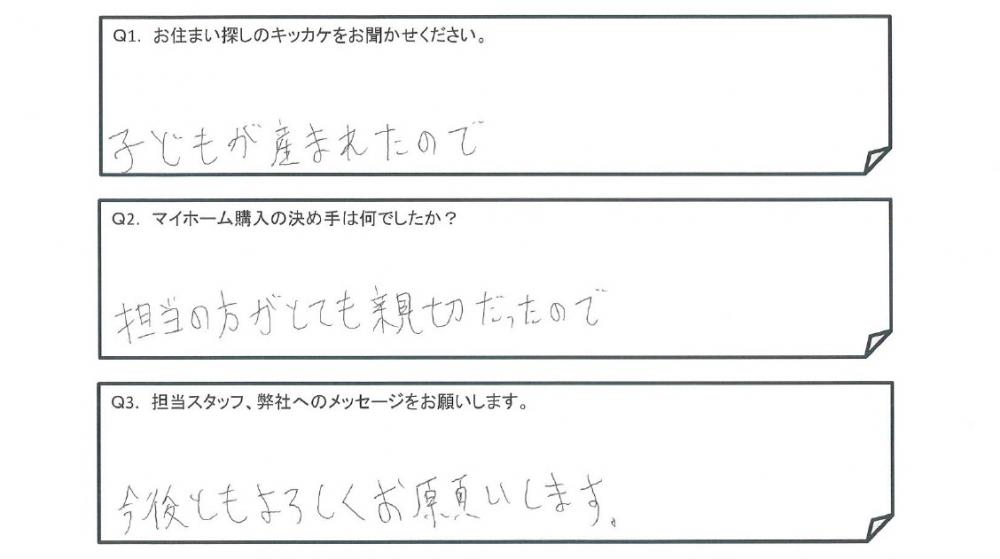 Q1. お住まい探しのキッカケをお聞かせください。
子どもが産まれたので
Q2. マイホーム購入の決め手は何でしたか？
担当の方がとても親切だったので
Q3. 担当スタッフ、弊社へのメッセージをお願いします。
今後ともよろしくお願いします。